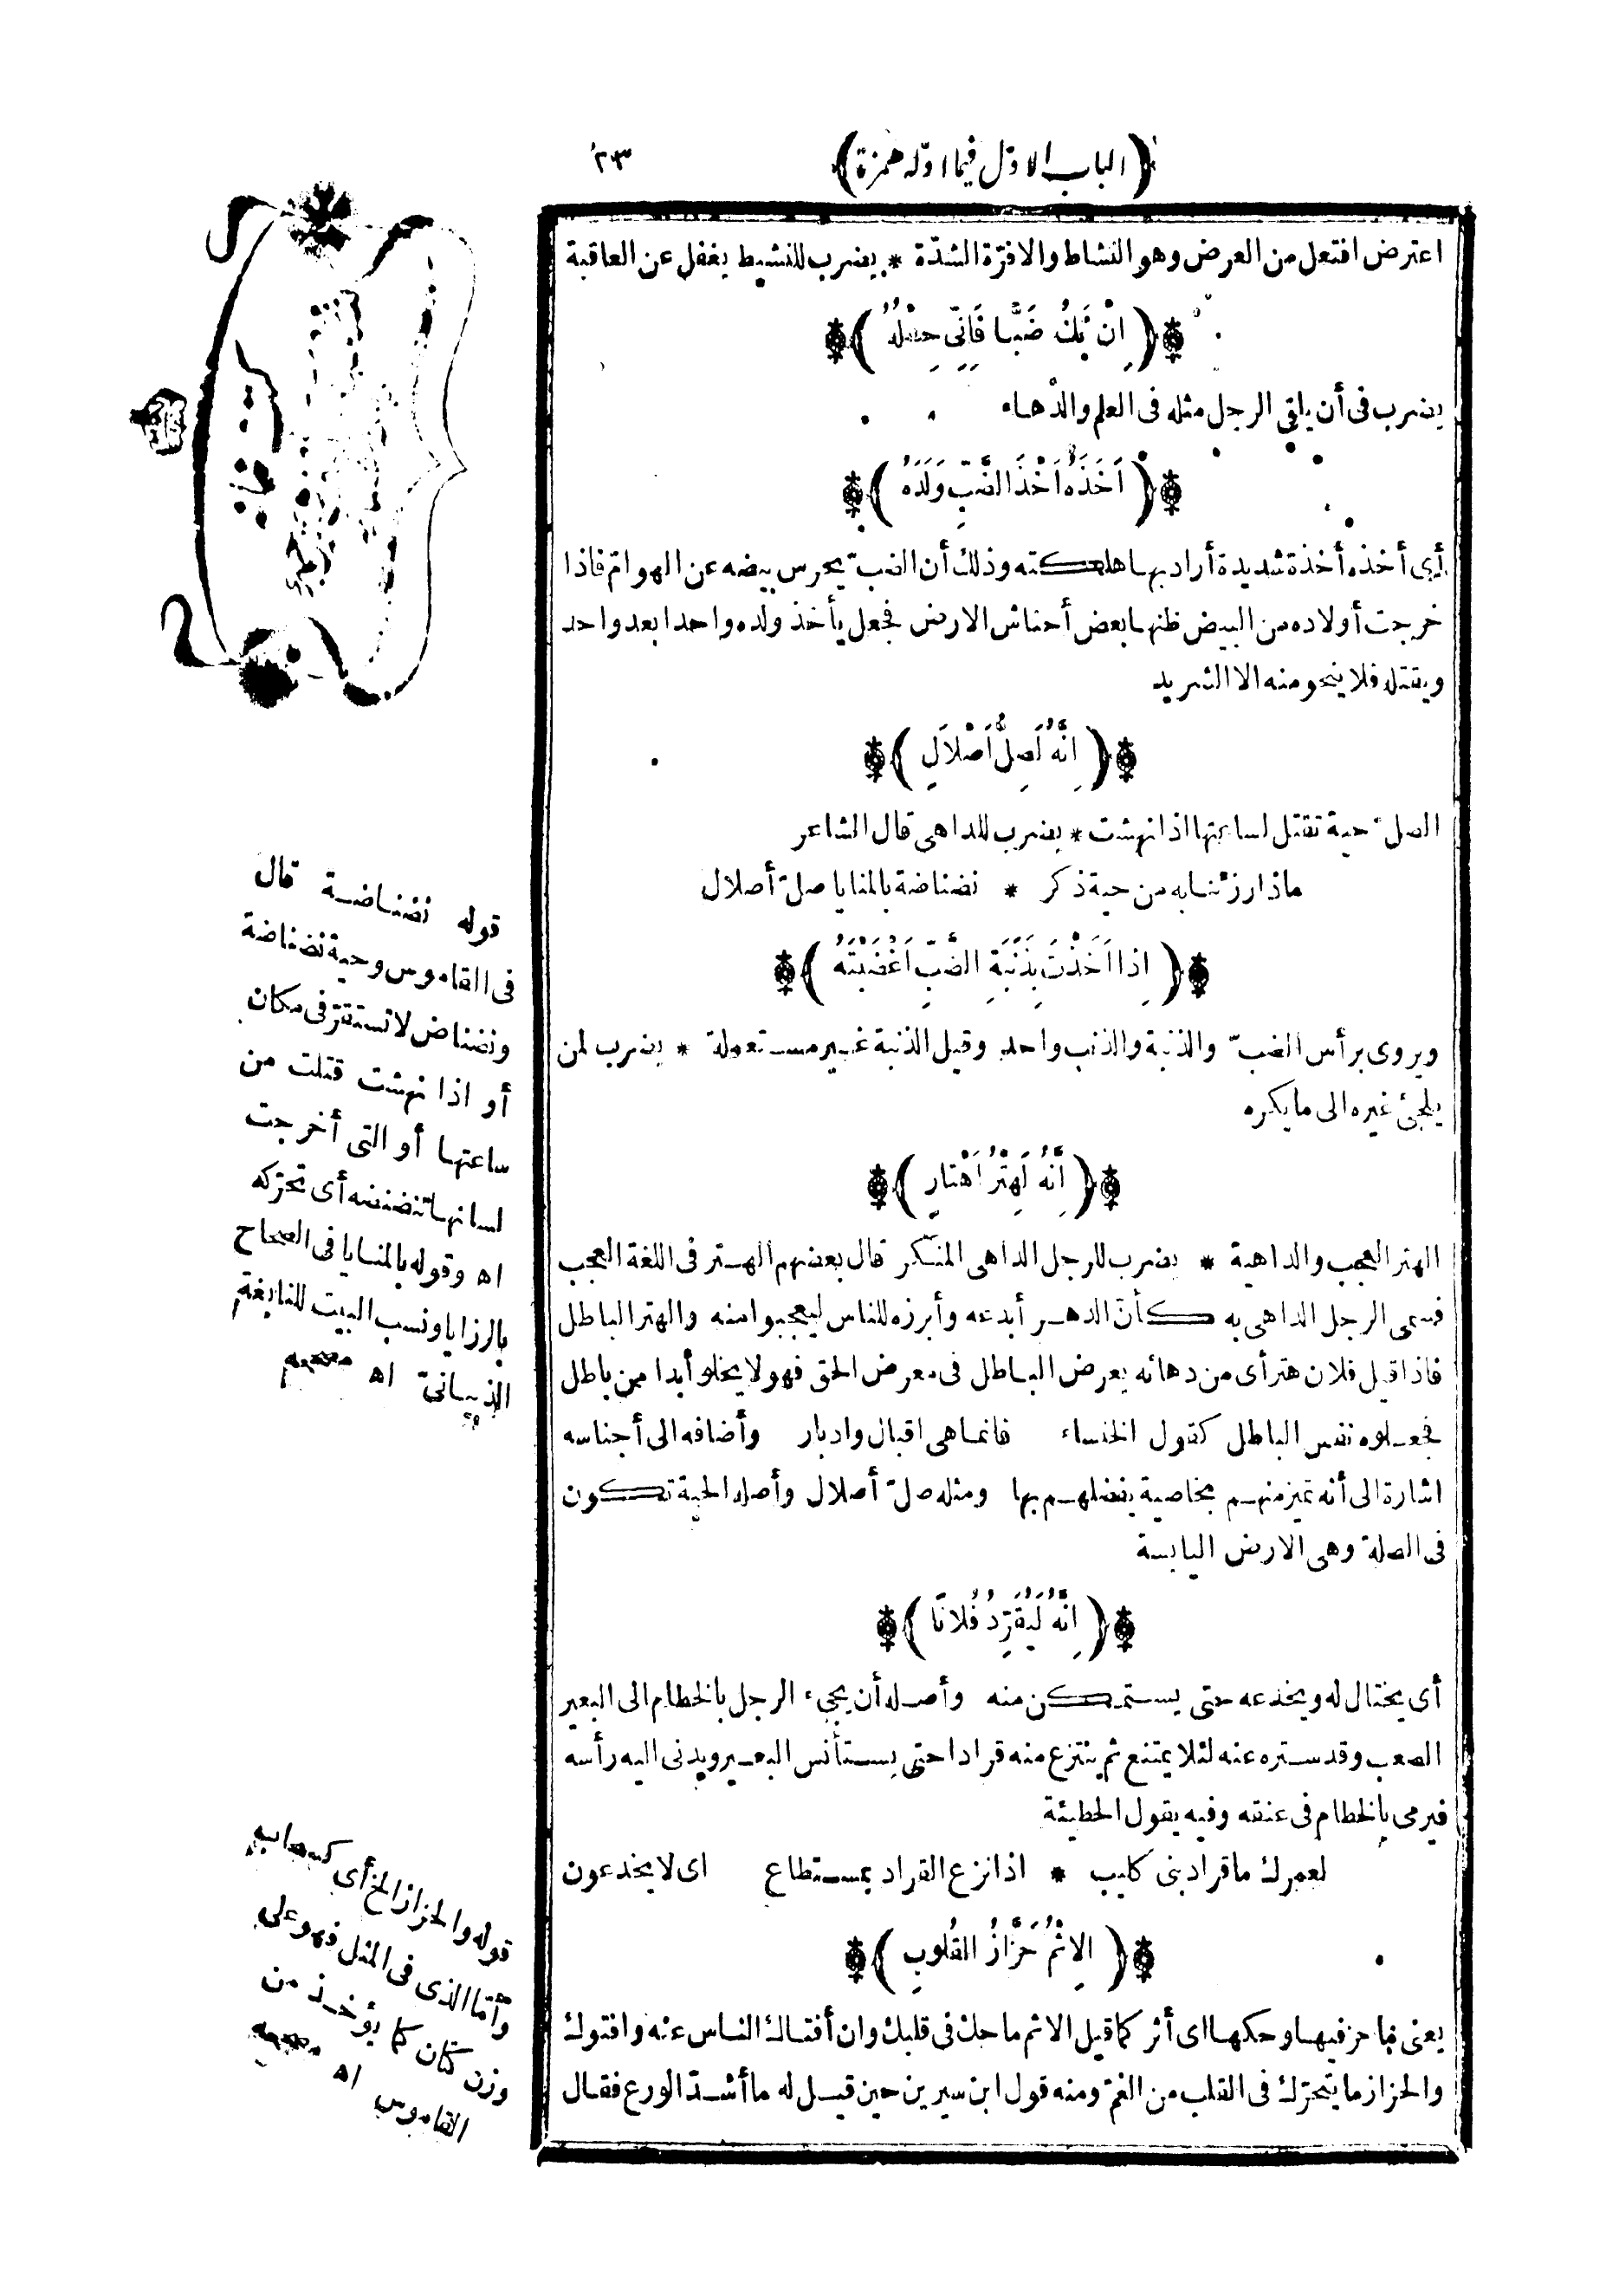 (الباب الاوّل فيما اوّله همزة) ٢٣
اعترض افتعل من العرض وهو النشاط والافرّة الشدّة * يضرب للنشيط يغفل عن العاقبة
(اِنْ يَكُ ضَبًّا فَاِنِّى حِسْلُهُ)
يضرب فى أن يلقى الرجل مثله فى العلم والدهاء
(اَخَذَهُ اَخْذَ الضَّبِّ وَلَدَهُ)
أى أخذه أخذة شديدة أراد بها هلكته وذلك أن الضبّ يحرس بيضه عن الهوامّ فاذا
خرجت أولاده من البيض ظنها بعض أحناش الارض فجعل يأخذ ولده واحدا بعد واحد
ويقتله فلا ينجو منه الا الشريد
(اِنَّهُ لَصِلُّ اَصْلَالٍ)
الصلّ حية تقتل لساعتها اذا نهشت * يضرب للداهى قال الشاعر
ماذا رزئنا به من حية ذكر * نضناضة بالمنايا صلّ أصلال
(اِذا اَخَذْتَ بِذَنَبَةِ الضَّبِّ اَغْضَبْتَهُ)
ويروى برأس الضبّ والذنبة والذنب واحد وقيل الذنبة غير مستعملة * يضرب لمن
يلجئ غيره الى ما يكره
(اِنَّهُ لَهِتْرُ اَهْتَارٍ)
الهتر العجب والداهية * يضرب للرجل الداهى المنكر قال بعضهم الهتر فى اللغة العجب
فسمى الرجل الداهى به كأنّ الدهر أبدعه وأبرزه للناس ليعجبوا منه والهتر الباطل
فاذا قيل فلان هتر أى من دهائه يعرض الباطل فى معرض الحق فهو لا يخلو أبدا من باطل
فجعلوه نفس الباطل كقول الخنساء فانما هى اقبال وادبار وأضافه الى أجناسه
اشارة الى أنه تميز منهم بخاصية يفضلهم بها ومثله صلّ أصلال وأصله الحية تكون
فى الصلة وهى الارض اليابسة
(اِنَّهُ لَيُقَرِّدُ فُلَانًا)
أى يحتال له ويخدعه حتى يستمكن منه وأصله أن يجىء الرجل بالخطام الى البعير
الصعب وقد ستره عنه لئلا يمتنع ثم ينتزع منه قرادا حتى يستأنس البعير ويدنى اليه رأسه
فيرمى بالخطام فى عنقه وفيه يقول الحطيئة
لعمرك ما قراد بنى كليب * اذا نزع القراد بمستطاع اى لا يخدعون
(الاِثْمُ حَزَّازُ القُلُوبِ)
يعنى ما حز فيها وحكها اى أثر كما قيل الاثم ما حك فى قلبك وان أفتاك الناس عنه وافتوك
والحزاز ما يتحرّك فى القلب من الغمّ ومنه قول ابن سيرين حين قيل له ما أشدّ الورع فقال
قوله نضناضة قال
فى القاموس وحية نضناضة
ونضناض لا تستقرّ فى مكان
أو اذا نهشت قتلت من
ساعتها أو التى أخرجت
لسانها تنضنضه أى تحرّكه
اه وقوله بالمنايا فى الصحاح
بالرزايا ونسب البيت للنابغة
الذبيانىّ اه مصححه
قوله والحزاز الخ أى كسحاب
وأمّا الذى فى المثل فهو على
وزن كتّان كما يؤخذ من
القاموس اه مصححه